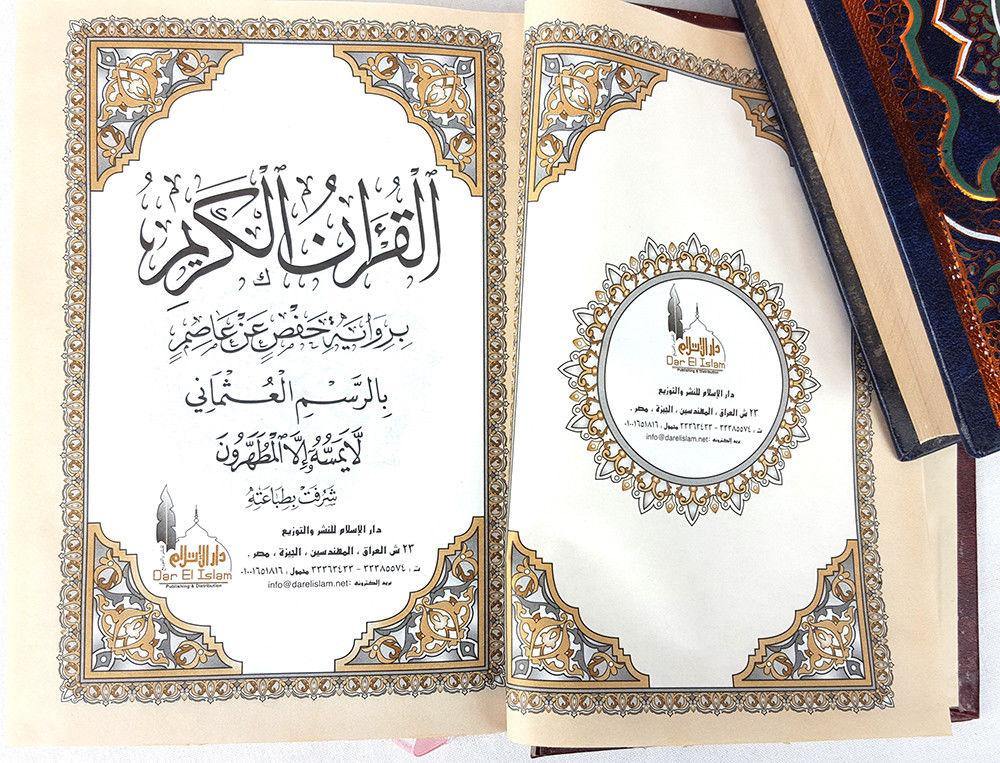 القرءان الكريم
برواية حفص عن عاصم
بالرسم العثماني
لا يمسه إلا المطهرون
شرفت بطباعته
دار الإسلام
Dar El Islam
Publishing & Distribution
دار الإسلام للنشر والتوزيع
٢٣ ش العراق ، المهندسين ، الجيزة ، مصر .
ت : ٣٣٣٨٥٥٧٤ - ٣٣٣٦٣٤٣٣ محمول : ٠١٠٠١٦٥١٨١٦
بريد إلكترونه : info@darelislam.net
دار الإسلام
Dar El Islam
Publishing & Distribution
دار الإسلام للنشر والتوزيع
٢٣ ش العراق ، المهندسين ، الجيزة ، مصر .
ت : ٣٣٣٨٥٥٧٤ - ٣٣٣٦٣٤٣٣ محمول : ٠١٠٠١٦٥١٨١٦
بريد إلكترونه : info@darelislam.net